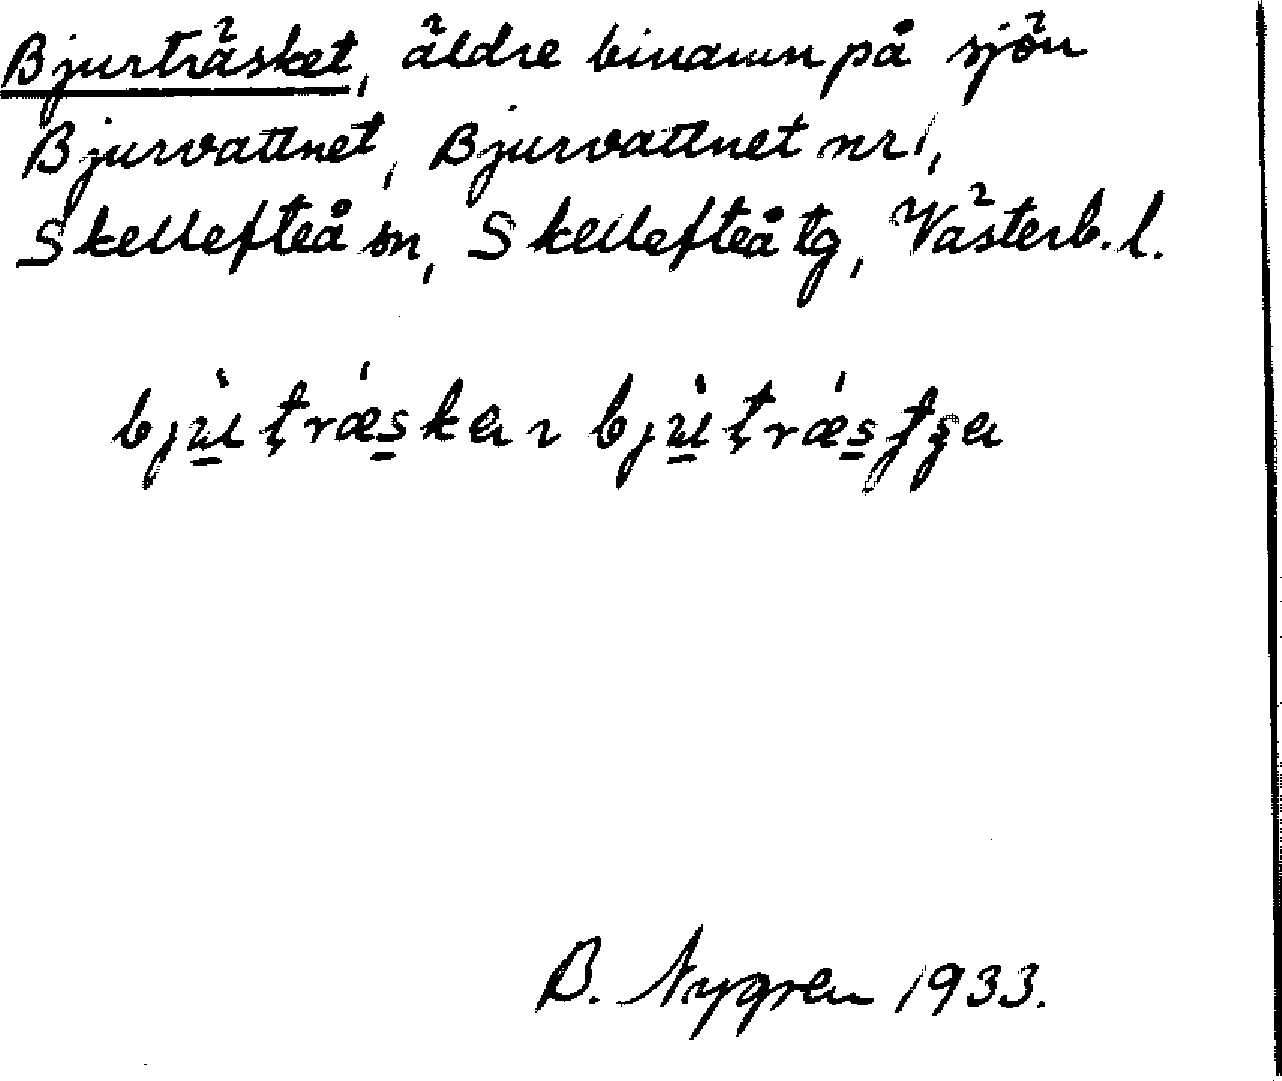 Bjurträsket, äldre binamn på sjön
Bjurvattnet, Bjurvattnet nr 1,
Skellefteå sn, Skellefteå tg, Västerb. l.
B. Nygren 1933.